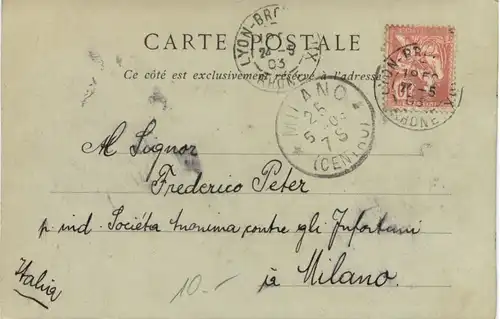 CARTE POSTALE
Ce côté est exclusivement réservé à l'adresse
LYON-BRO
5
03
RHONE
MILANO
25
5 03
7 S
(CENTRO)
Al Signor
Federico Peter
p. ind. Società Anonima contro gli Infortuni
à Milano.
Italia
10.-